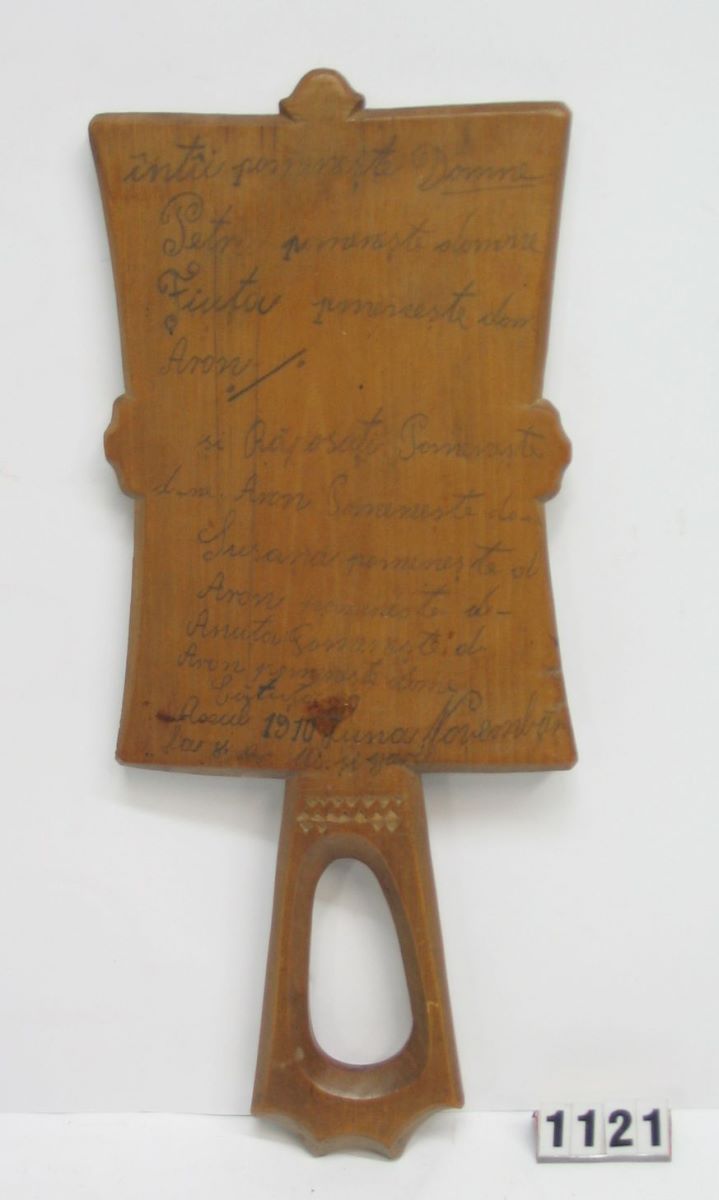 întîi pomenește Domne
Petr pomenește domne
Fiuta pmenește dom
Aron
si Răposați Pomenește
dme Aron Pomenește do
Susana pomenește d
Aron pomenește d-
Anuta Pomenește d
Aron pomenește dmne
1910 luna Novembăr
1121